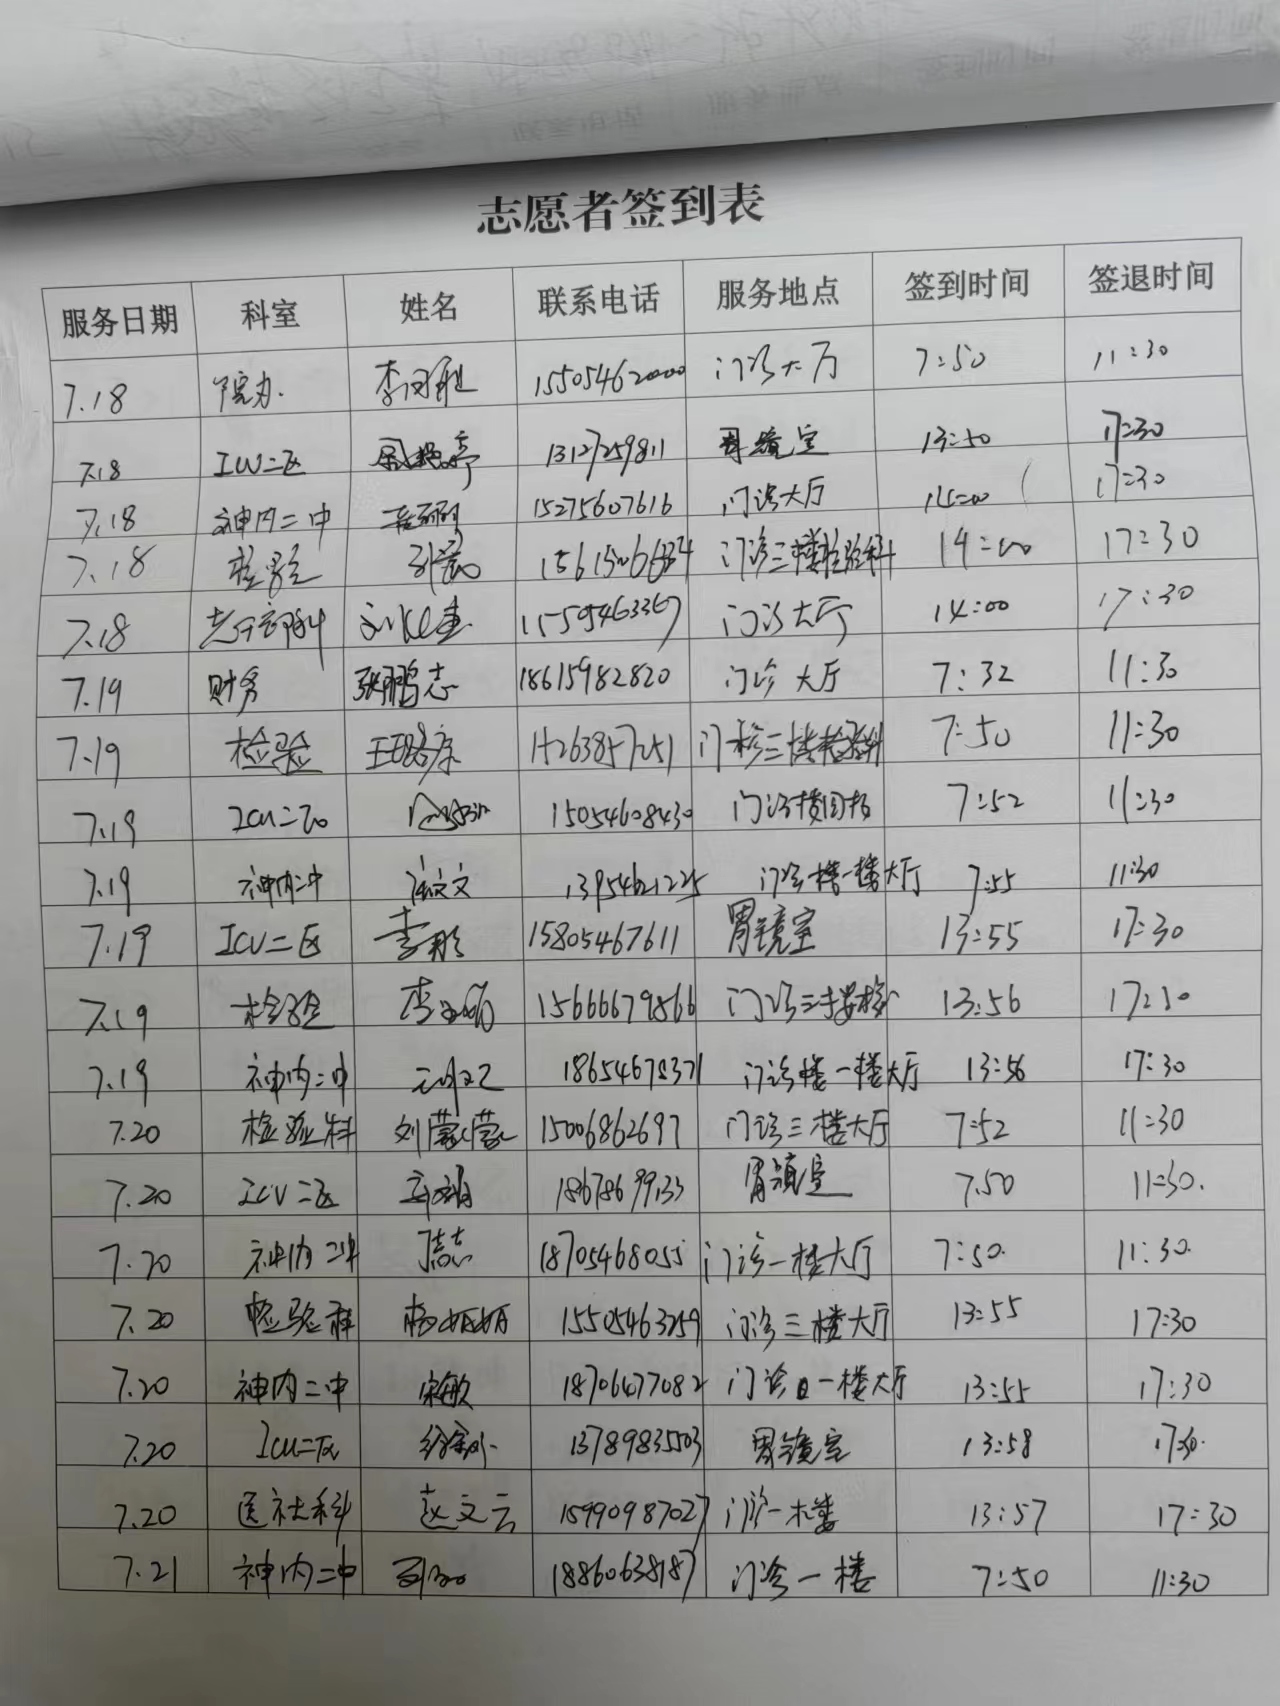 志愿者签到表
服务日期 科室 姓名 联系电话 服务地点 签到时间 签退时间
7.18 院办. 15505462000 门诊大厅 7:50 11:30
7.18 ICU二区 13127259811 胃镜室 13:50 17:30
7.18 神内二中 15275607616 门诊大厅 14:00 17:30
7.18 检验 门诊三楼检验科 14:00 17:30
7.18 老年医学科 门诊大厅 14:00 17:30
7.19 财务 张鹏志 18615982820 门诊大厅 7:32 11:30
7.19 检验 门诊三楼检验科 7:50 11:30
7.19 ICU二区 15054608430 7:52 11:30
7.19 神内二中 13954621225 门诊楼一楼大厅 7:55 11:30
7.19 ICU二区 李彤 15805467611 胃镜室 13:55 17:30
7.19 检验 15666679866 13:56 17:30
7.19 神内二中 18654678371 门诊楼一楼大厅 13:56 17:30
7.20 检验科 刘蒙蒙 15006862697 门诊三楼大厅 7:52 11:30
7.20 ICU二区 胃镜室 7.50 11:30.
7.20 神内二中 18705468055 门诊一楼大厅 7:50. 11:30.
7.20 检验科 杨妍妍 15505463259 门诊三楼大厅 13:55 17:30
7.20 神内二中 宋敏 18706477082 门诊一楼大厅 13:55 17:30
7.20 ICU二区 13789835503 胃镜室 13:58
7.20 医社科 赵文云 15990987027 门诊一楼 13:57 17:30
7.21 神内二中 18860638187 门诊一楼 7:50 11:30